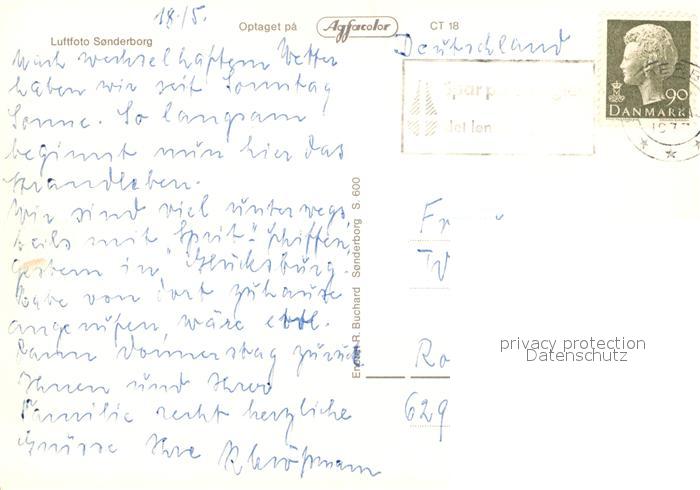 18./5.
Optaget på Agfacolor CT 18
Luftfoto Sønderborg
Nach wechselhaftem Wetter
haben wir seit Sonntag
Sonne. So langsam
beginnt nun hier das
Strandleben.
Wir sind viel unterwegs,
teils mit "Sprit"-Schiffen,
Gestern in Glücksburg.
Habe von dort zuhause
angerufen, wäre
Dann Donnerstag zurück
Ihnen und Ihrer
Familie recht herzliche
Grüsse Ihre
Eneret R. Buchard Sønderborg S. 600
Deutschland
Spar på
det løn
90
DANMARK
Fr
Ro
629
privacy protection
Datenschutz